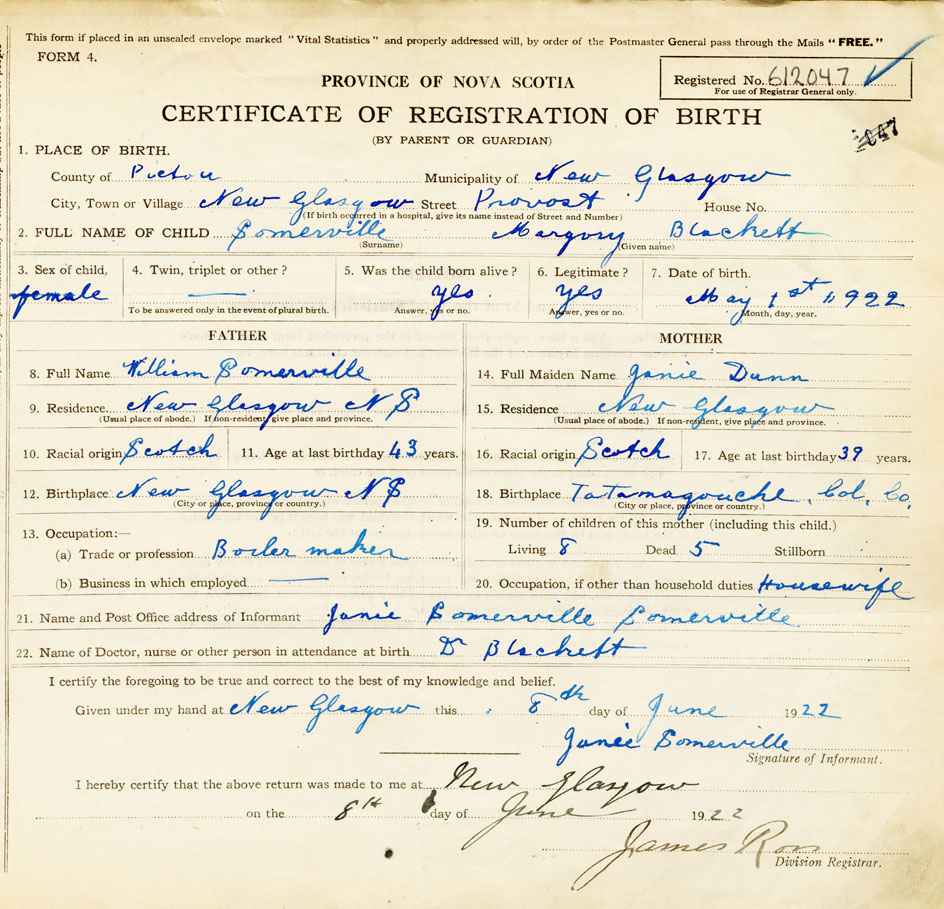 This form if placed in an unsealed envelope marked "Vital Statistics" and properly addressed will, by order of the Postmaster General pass through the Mails "FREE."
FORM 4.
Registered No. 612047
For use of Registrar General only.
PROVINCE OF NOVA SCOTIA
CERTIFICATE OF REGISTRATION OF BIRTH
(BY PARENT OR GUARDIAN)
1. PLACE OF BIRTH.
County of Pictou Municipality of New Glasgow
City, Town or Village New Glasgow Street Provost House No.
(If birth occurred in a hospital, give its name instead of Street and Number)
2. FULL NAME OF CHILD Somerville Margory Blackett
(Surname) (Given name)
3. Sex of child. 4. Twin, triplet or other? 5. Was the child born alive? 6. Legitimate? 7. Date of birth.
female — yes yes May 1st 1922
To be answered only in the event of plural birth. Answer, yes or no. Answer, yes or no. Month, day, year.
FATHER
8. Full Name William Somerville
9. Residence New Glasgow N S
(Usual place of abode.) If non-resident, give place and province.
10. Racial origin Scotch 11. Age at last birthday 43 years.
12. Birthplace New Glasgow N S
(City or place, province or country.)
13. Occupation:—
(a) Trade or profession Boiler maker
(b) Business in which employed —
MOTHER
14. Full Maiden Name Janie Dunn
15. Residence New Glasgow
(Usual place of abode.) If non-resident, give place and province.
16. Racial origin Scotch 17. Age at last birthday 39 years.
18. Birthplace Tatamagouche, Col, Co,
(City or place, province or country.)
19. Number of children of this mother (including this child.)
Living 8 Dead 5 Stillborn
20. Occupation, if other than household duties Housewife
21. Name and Post Office address of Informant Janie Somerville Somerville
22. Name of Doctor, nurse or other person in attendance at birth Dr Blackett
I certify the foregoing to be true and correct to the best of my knowledge and belief.
Given under my hand at New Glasgow this 8th day of June 1922
Janie Somerville
Signature of Informant.
I hereby certify that the above return was made to me at New Glasgow
on the 8th day of June 1922
James Ross
Division Registrar.